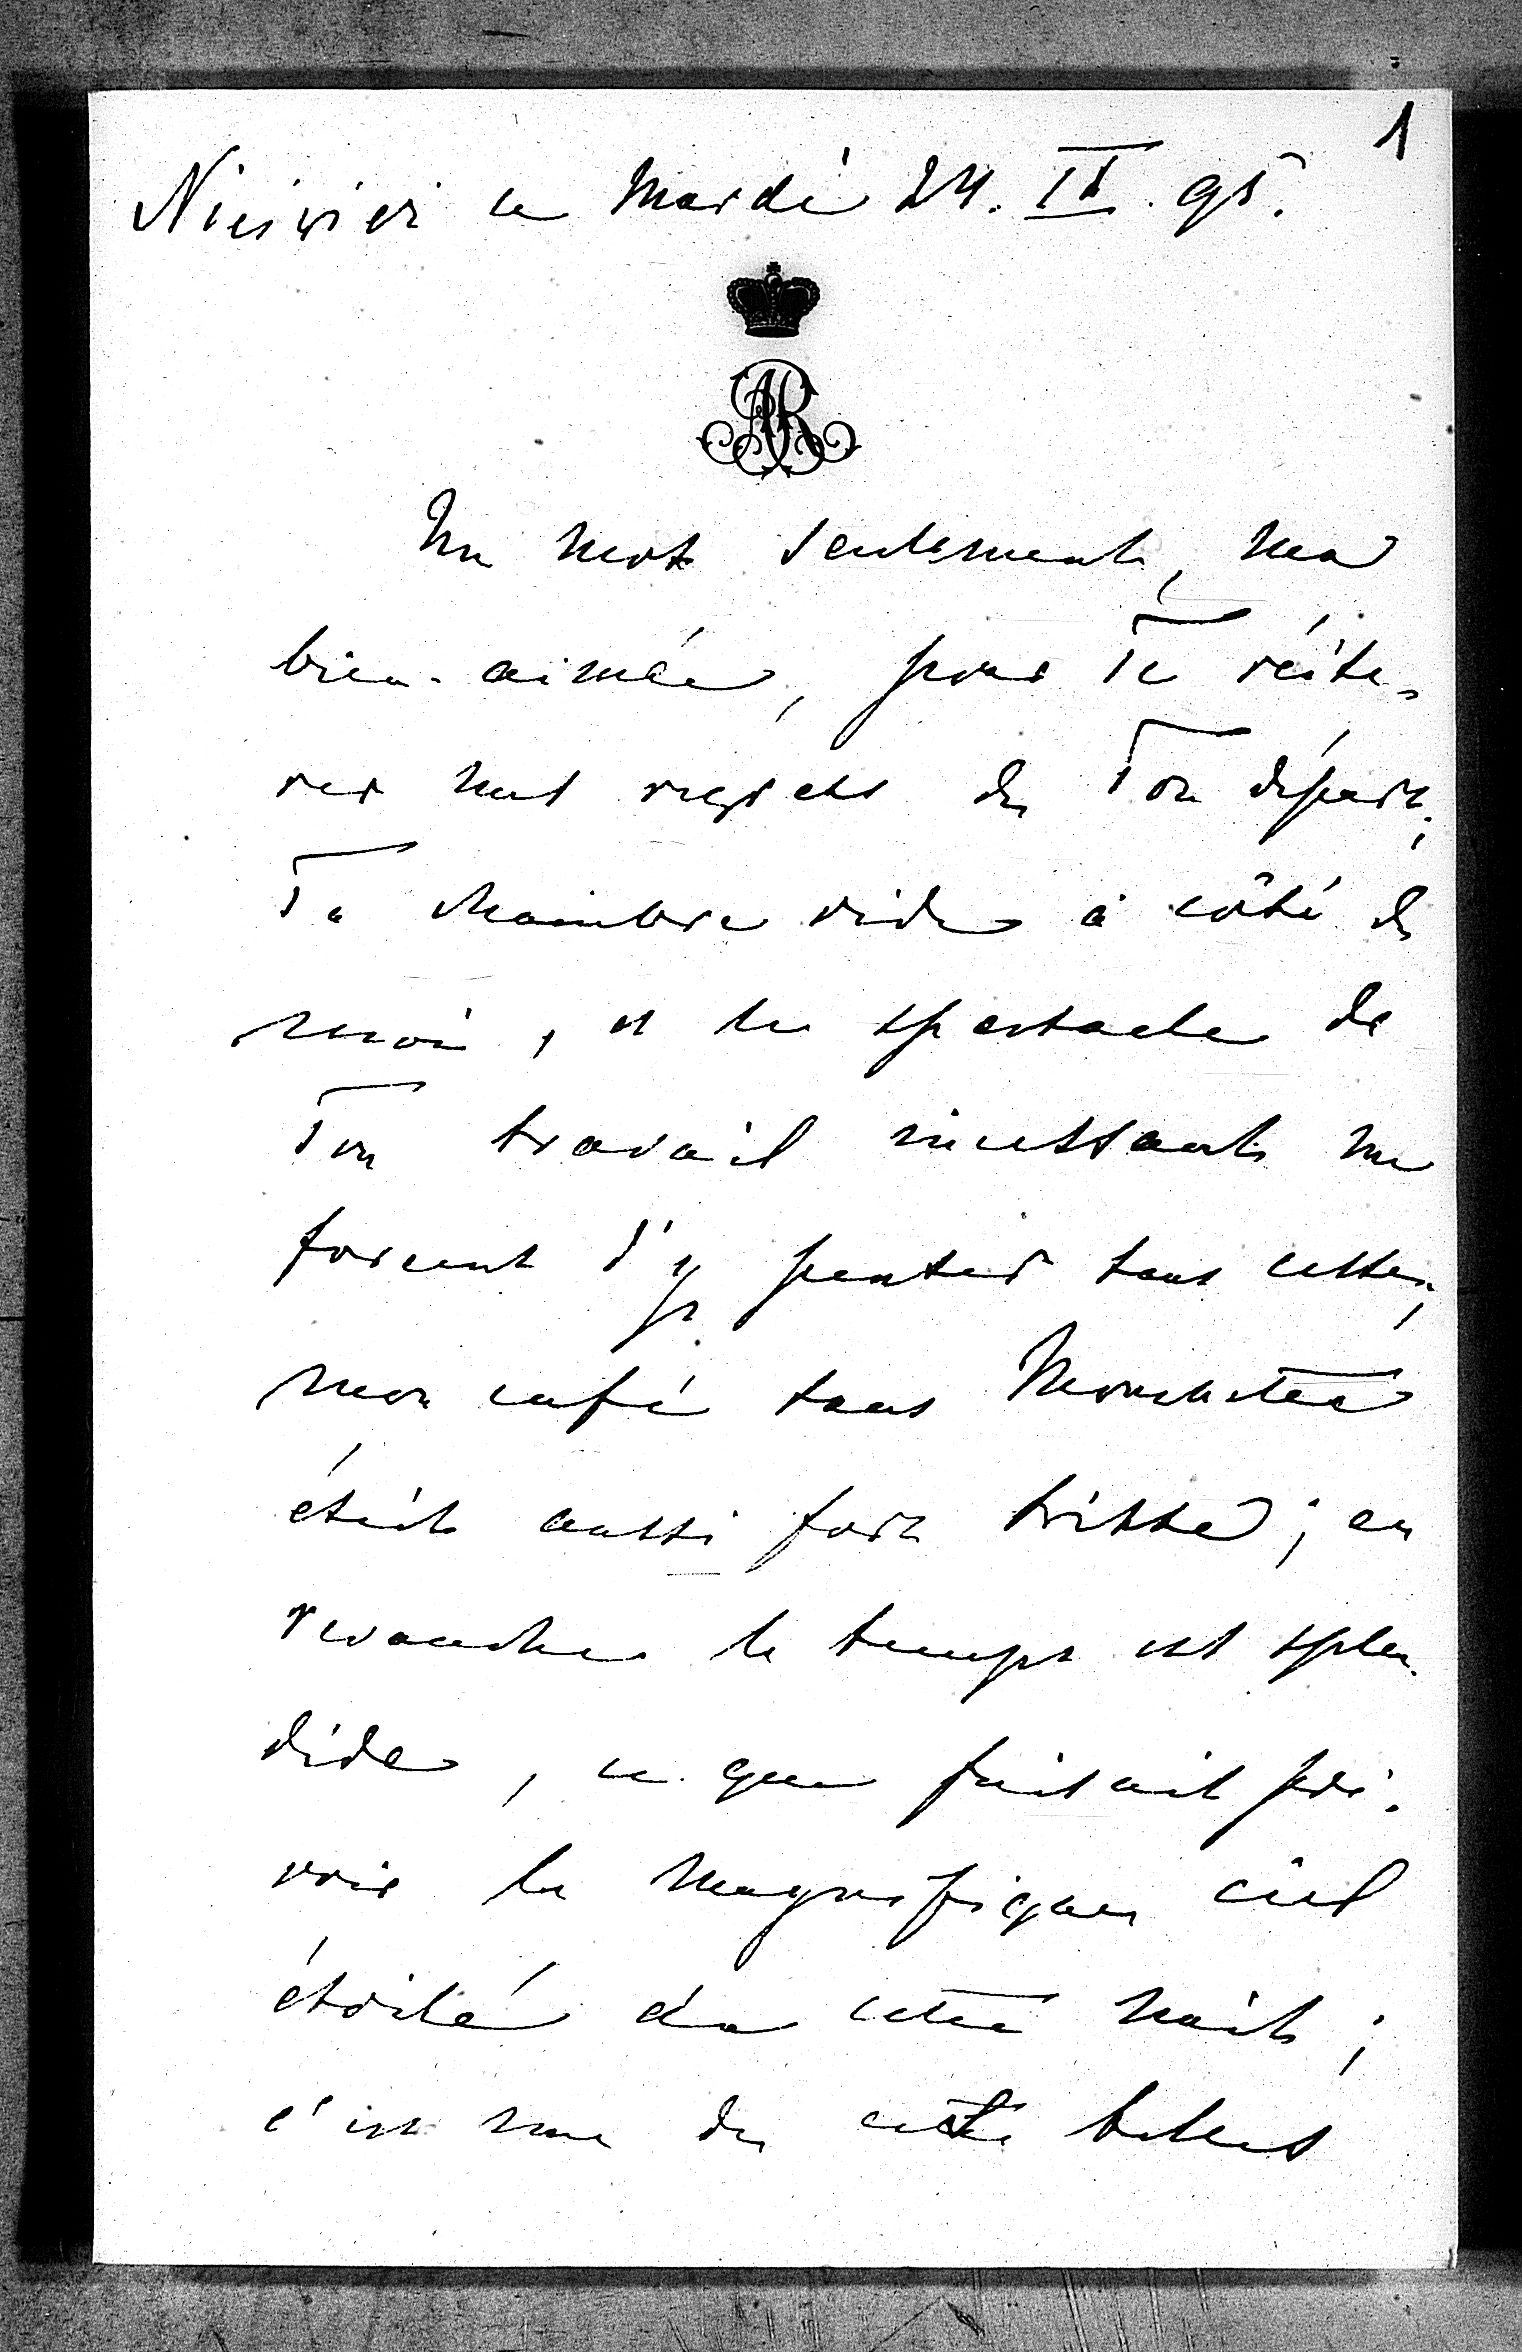 1
Nieśwież ce Mardi 24. IX. 95.
AR
Un mot seulement, ma
bien-aimée, pour Te réité-
rer mes regrets de Ton départ;
Ta chambre vide à côté de
moi, et le spectacle de
Ton travail incessant me
forcent d'y penser sans cesse;
mon café sans
était aussi fort triste; en
revanche le temps est splen-
dide, ce que faisait pré-
voir le magnifique ciel
étoilé de cette nuit;
c'est une de ces belles